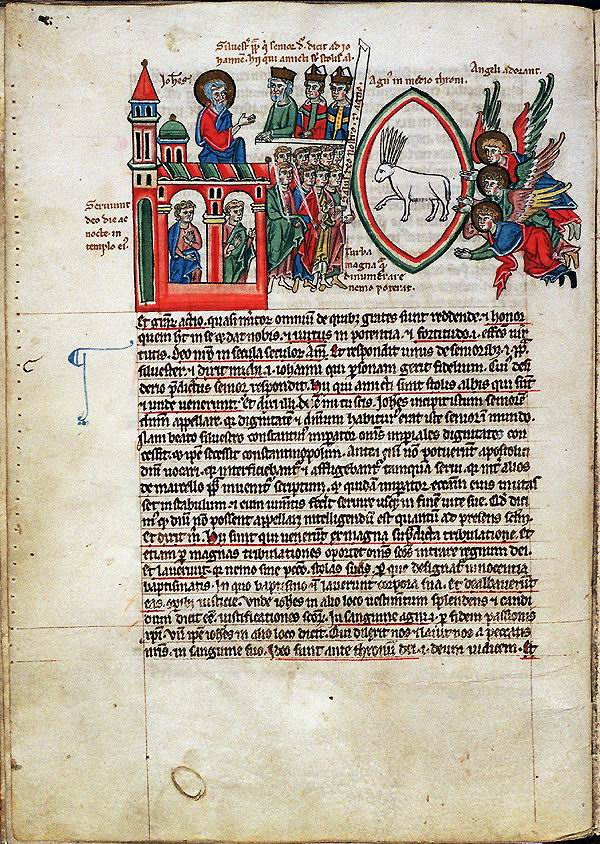 Siluest' pp q̄ senior d'. dicit ad io
hanne. Hij qui amicti st' stolis al.
Ioh̄es
Agn' in medio throni.
Angeli adorant.
Seruiunt
deo die ac
nocte in
templo ei'.
Turba
magna q̄
dinumerare
nemo poterat.
Et gr̄ar̄ actio. quasi
omnium de quib; grates sunt reddende. et honor
quem ht in se dar nobis. et uirtus in potentia. et fortitudo .i. effcs uir
tutis. Deo nr̄o in secula seculor Am̄. Et respondit unus de seniorib;.
siluester. et dixit michi .i. iohanni qui personam gerit fidelium. Cui desi
derio p̄dictus senior respondit. Hij qui amicti sunt stolis albis qui sūt
et unde uenerunt. Et dixi illi. Dn̄e mi tu scis. Ioh̄es incipit istum seniorem
dn̄um appellare. qr dignitatē et dn̄ium habitur' erat iste senior in mundo.
Nam beato siluestro constantin' impator om̄s impiales dignitates con
cessit. et ipe secessit constantinopolim. Antea
non potuerunt apostolici
dn̄i uocari. qr interficiebant' et affligebant' tanquam serui.
inter alios
de marcello pp inuenit' scriptum. qr quidam impator ecc̄iam eius mutas
set in stabulum. et eum iumentis fecit seruire usq; in finem uite sue. Qd dici
qr dn̄i non possent appellari intelligendū est quantū ad presens sclm.
Et dixit m. Hij sunt qui uenerūt ex magna
tribulatione. et
etiam p magnas tribulationes oportet om̄s scōs intrare regnum dei.
Et lauerūt. qr nemo sine pecc̄o. stolas suas. p que designat' innocentia
baptismatis. In quo baptismo
lauerunt corpora sua. Et dealbauerūt
eas.
iusticie. Unde ioh̄es in alio loco uestimentum splendens et candi
dum dicit eē iustificationes scōr. In sanguine agni .i. p fidem passionis
xpi. Vn̄ ipe ioh̄es in alio loco dicit. Qui dilexit nos et lauit nos a peccatis
nr̄is. in sanguine suo. Ideo sunt ante thronū dei .i. deum uident. Et